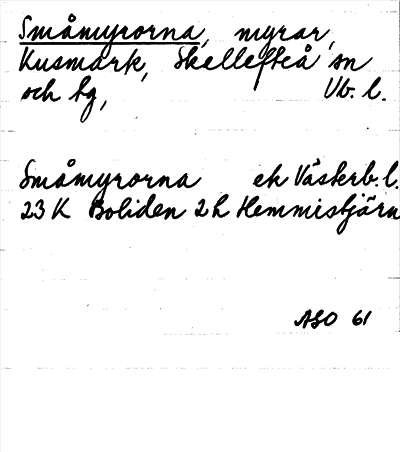 Småmyrorna, myrar,
Kusmark, Skellefteå sn
och hg, Vb. l.
Småmyrorna ek Västerb. l.
23 K Boliden 2 h Hemmistjärn
ASO 61